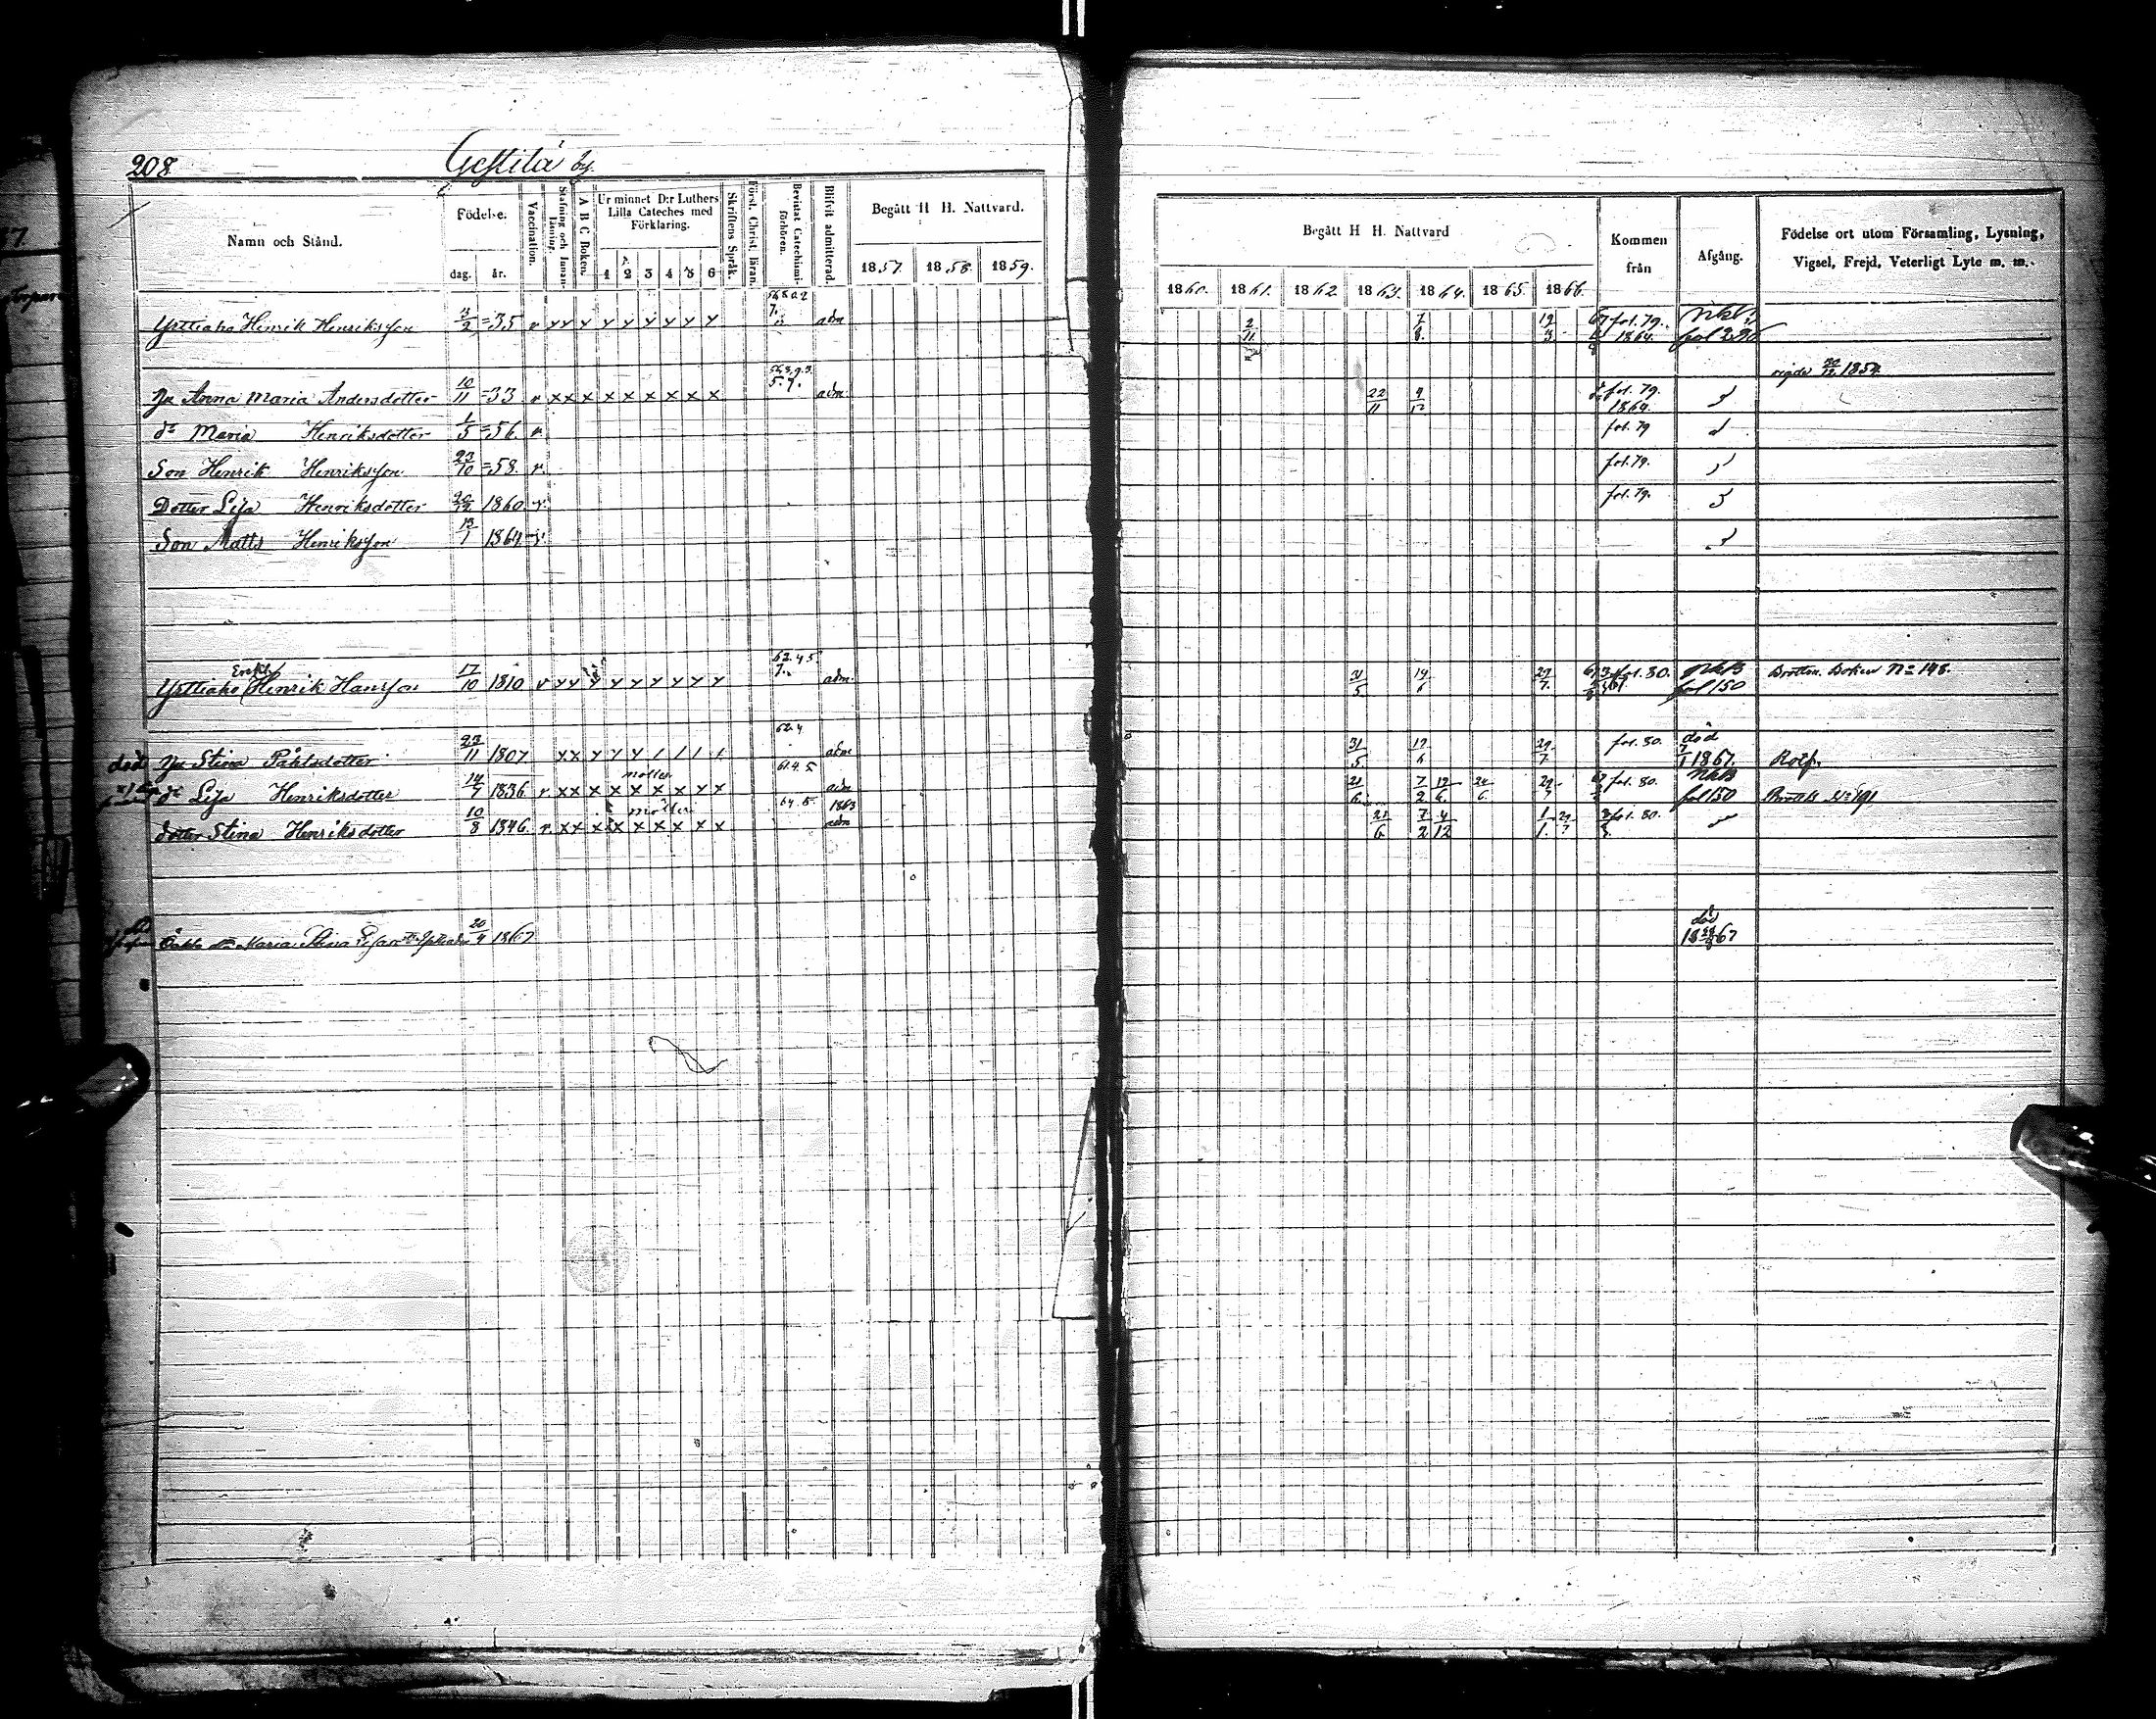 208
by.
Namn och Stånd.
Födelse.
dag. år.
Vaccination.
Stafning och Innan-läsning.
A B C Boken.
Ur minnet D:r Luthers Lilla Cateches med Förklaring.
1 2 3 4 5 6
Skriftens Språk.
Först. Christ. läran.
Bevistat Catechismi-förhören.
Blifvit admitterad.
Begått H H. Nattvard.
1857. 1858. 1859.
Begått H H. Nattvard
1860. 1861. 1862. 1863. 1864. 1865. 1866.
Kommen från
Afgång.
Födelse ort utom Församling, Lysning, Vigsel, Frejd, Veterligt Lyte m. m.
Yrttiaho Henrik Henriksson =35 v x x x x x x x x x adm 2/11 7/8 19/3 fol. 79. 1864.
vigde 1854.
Hu Anna Maria Andersdotter 10/11 =33 v x x x x x x x x x adm 22/11 4/12 fol. 79. 1864.
dr Maria Henriksdotter 1/5 =56 v. fol. 79
Son Henrik Henriksson 22/10 =58. v. fol. 79.
Dotter Lisa Henriksdotter 1860 v. fol. 79.
Son Matts Henriksson 13/1 1864 v.
Yrttiaho Henrik Hansson 17/10 1810 v x x x x x x x x x 62. 4 5. 7. adm. 31/5 19/6 29/7. fol. 80. NkB fol 150 Brottm. Boken No 148.
död Hu Stina Påhlsdotter 23/11 1807 x x x x x / / / / 62. 4 adm 31/5 19/6 29/7 fol. 80. död 1867. Rotf.
dr Lisa Henriksdotter 14/7 1836 v x x x x x x x x x 61. 4. 5 adm 21/6 7/2 29/7 fol. 80. NkB fol 150 No 191
dotter Stina Henriksdotter 10/8 1846. v x x x x x x x x x 64. 5. 1863 adm 21/6 7/2 4/12 fol. 80.
Maria Stina 20/4 1867 död 1867